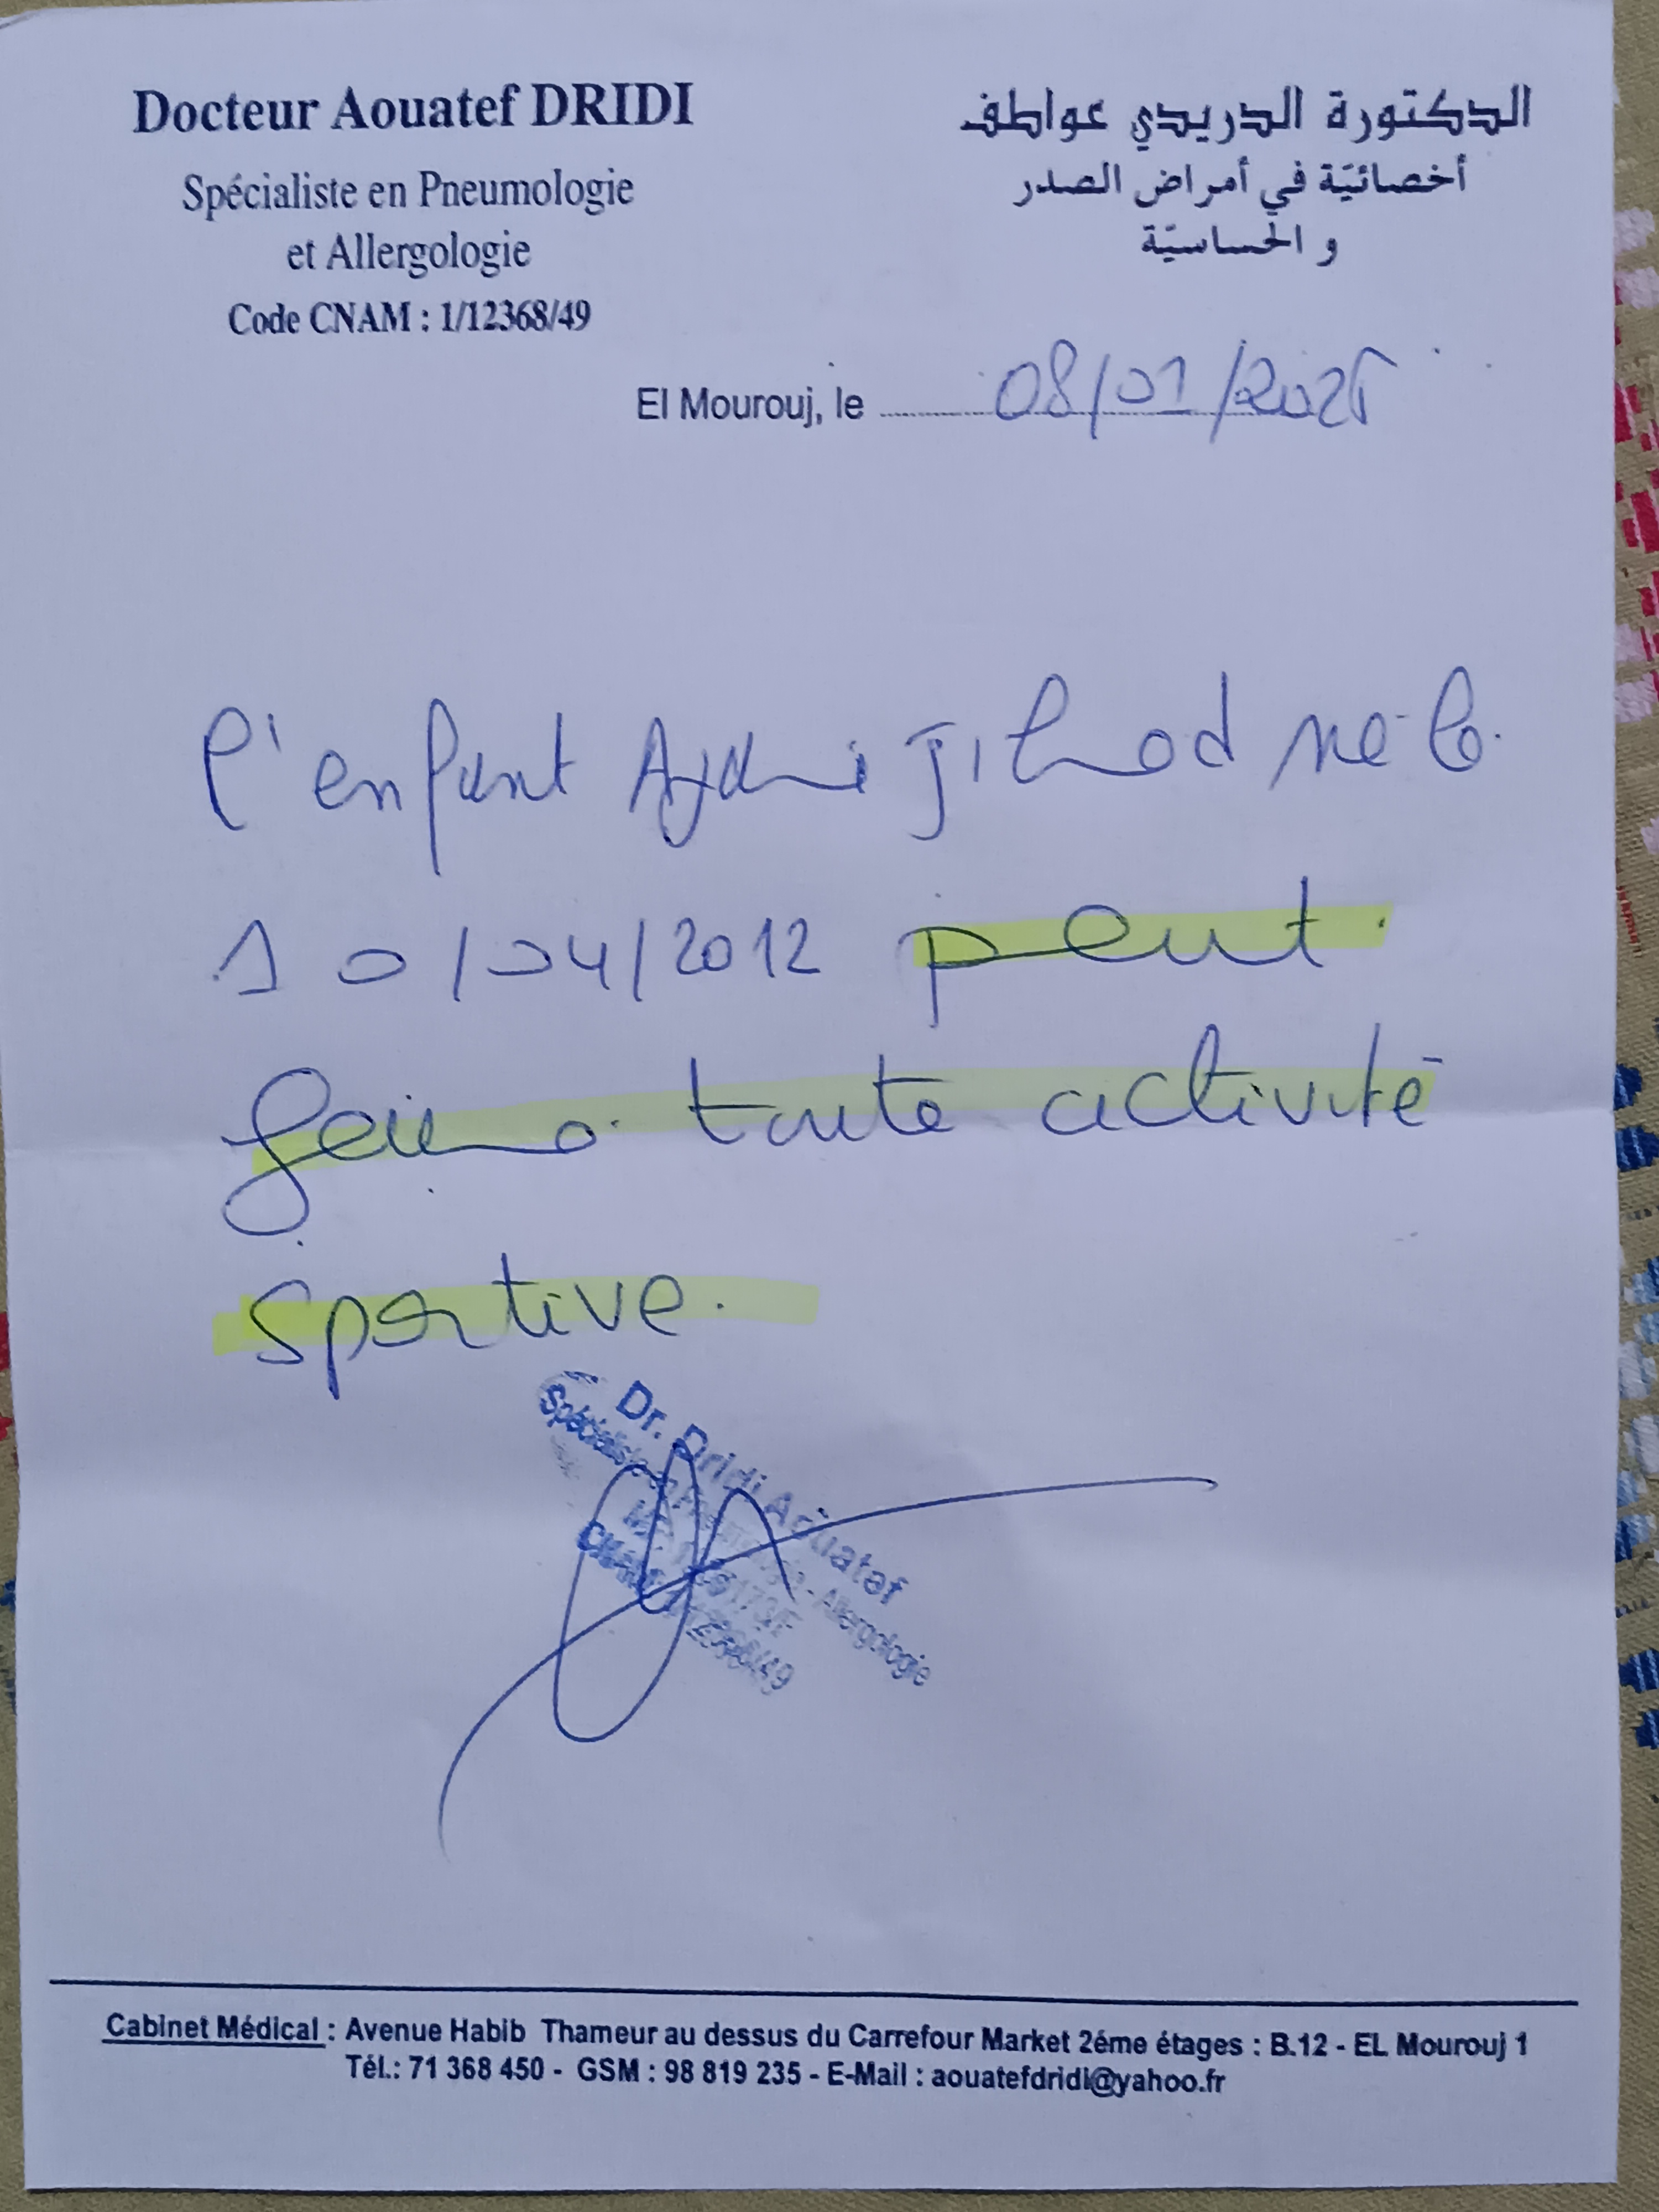 Docteur Aouatef DRIDI
Spécialiste en Pneumologie
et Allergologie
Code CNAM : 1/12368/49
الدكتورة الدريدي عواطف
أخصائيّة في أمراض الصدر
و الحساسيّة
El Mourouj, le 08/01/2025
l'enfant Jihad né le
10/04/2012 peut
faire toute activité
sportive.
Dr. Dridi Aouatef
Spécialiste en Pneumologie - Allergologie
CNAM: 1/12368/49
Cabinet Médical : Avenue Habib Thameur au dessus du Carrefour Market 2éme étages : B.12 - EL Mourouj 1
Tél.: 71 368 450 - GSM : 98 819 235 - E-Mail : aouatefdridi@yahoo.fr